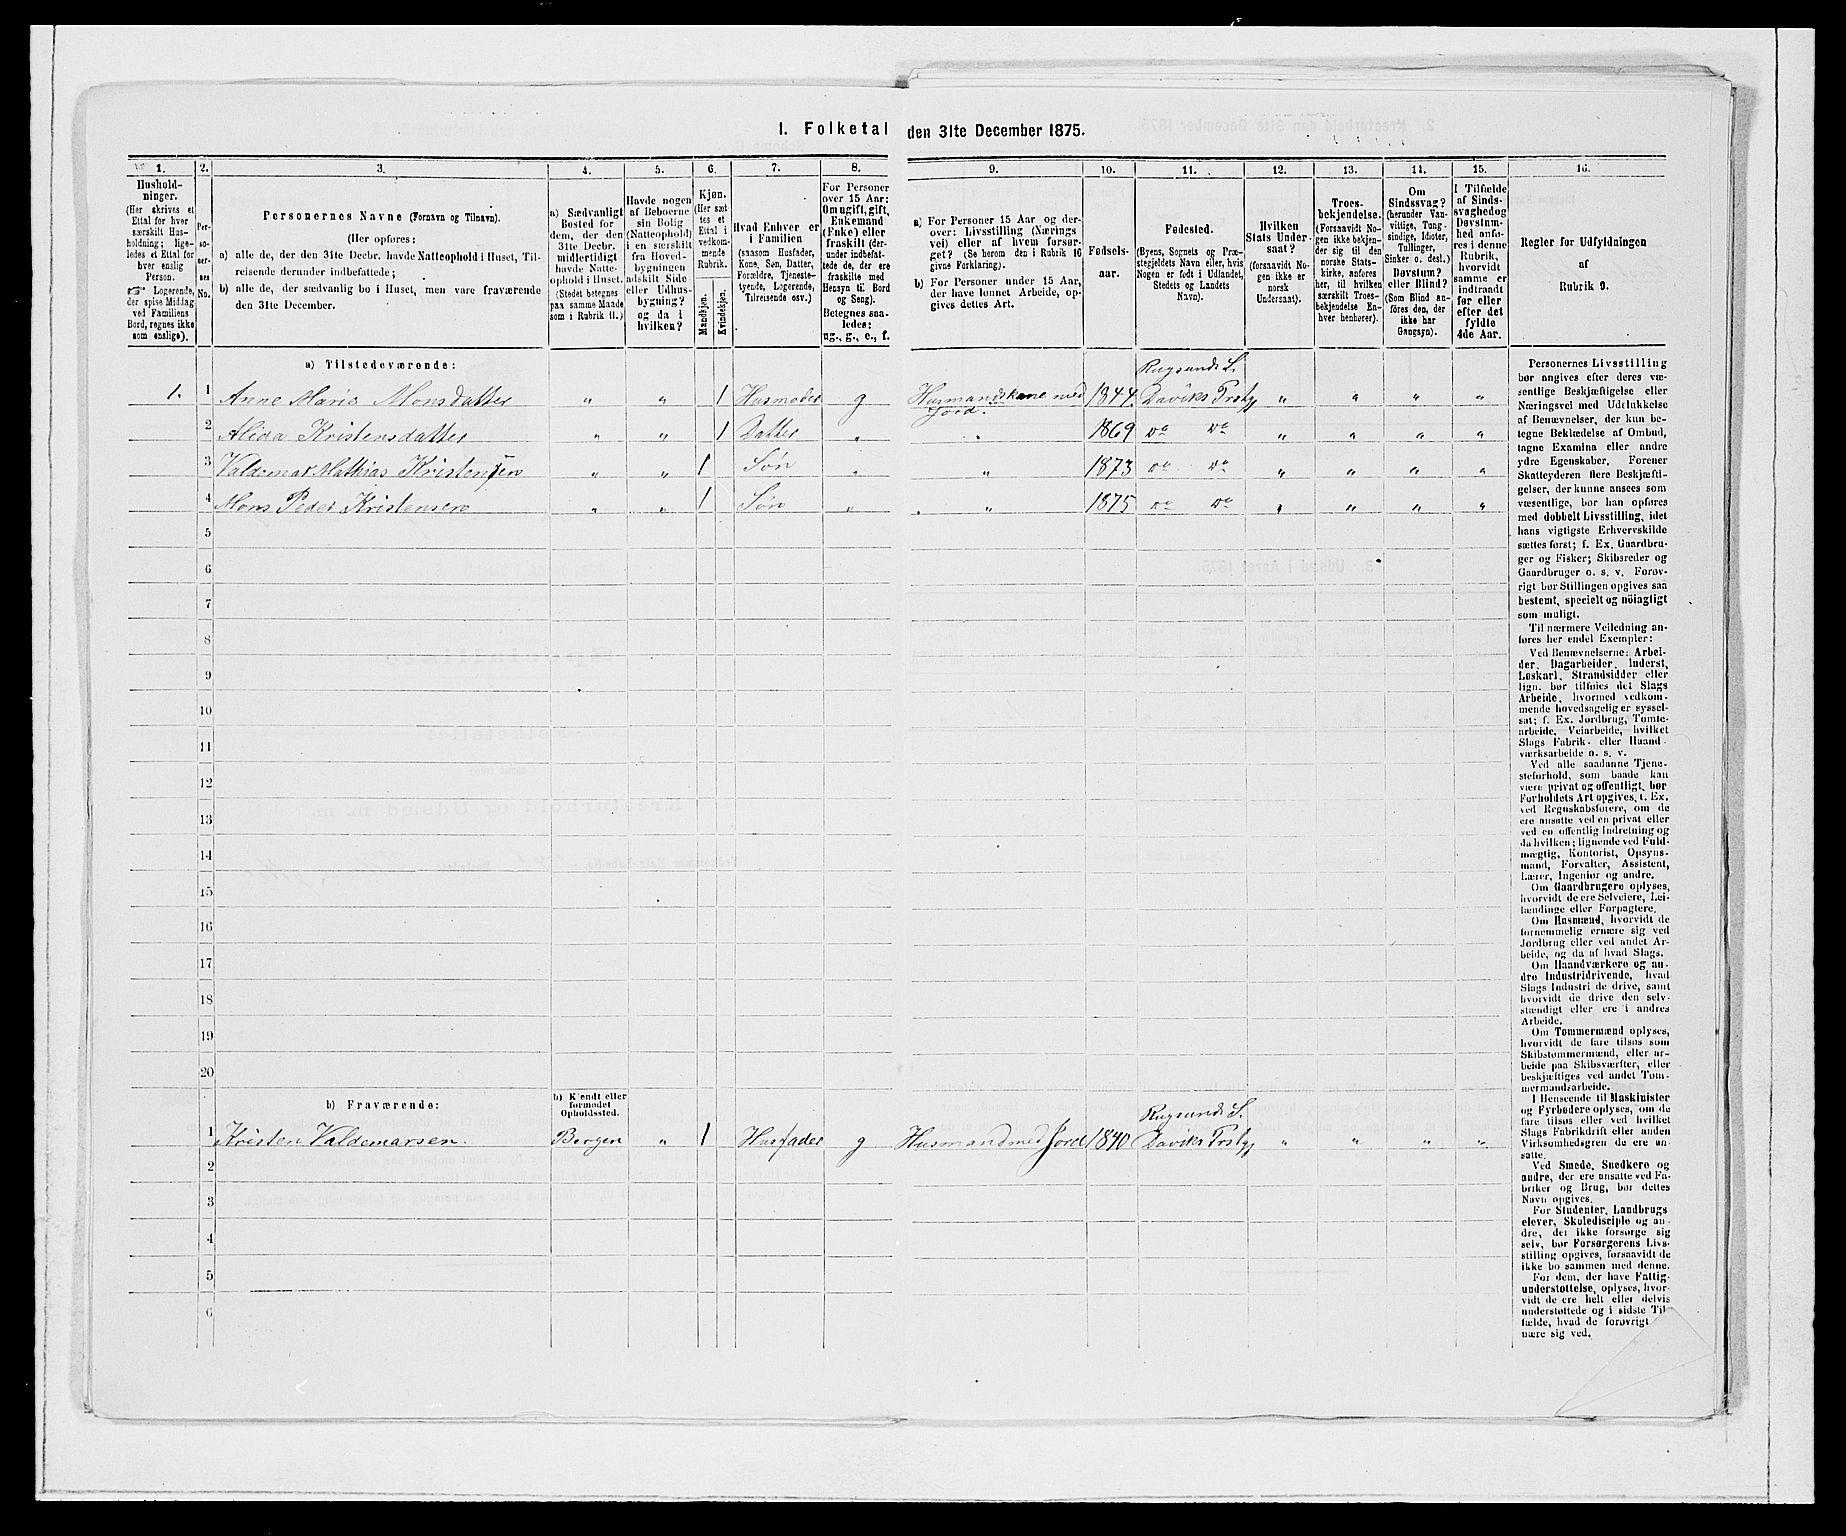 I. Folketal den 31te December 1875.
1. 2. 3. 4. 5. 6. 7. 8. 9. 10. 11. 12. 13. 14. 15. 16.
Hushold-
ninger.
(Her skrives et
Ettal for hver
særskilt Hus-
holdning; lige-
ledes et Ettal for
hver enslig
Person.
☞ Logerende,
der spise Middag
ved Familiens
Bord, regnes ikke
som enslige).
Per-
so-
ner-
nes
No.
Personernes Navne (Fornavn og Tilnavn).
(Her opføres:
a) alle de, der den 31te Decbr. havde Natteophold i Huset, Til-
reisende derunder indbefattede;
b) alle de, der sædvanlig bo i Huset, men vare fraværende
den 31te December.
a) Sædvanligt
Bosted for
dem, der den
31te Decbr.
midlertidigt
havde Natte-
ophold i Huset.
(Stedet betegnes
paa samme Maade
som i Rubrik 11.)
Havde nogen
af Beboerne
sin Bolig
(Natteophold)
i en særskilt
fra Hoved-
bygningen
adskilt Side
eller Udhus-
bygning?
og da i
hvilken?
Kjøn.
(Her sæt
tes et
Ettal i
vedkom-
mende
Rubrik.
Mandkjøn.
Kvindekjøn.
Hvad Enhver er
i Familien
(saasom Husfader,
Kone, Søn, Datter,
Forældre, Tjeneste-
tyende, Logerende,
Tilreisende osv.)
For Personer
over 15 Aar:
Om ugift, gift,
Enkemand
(Enke) eller
fraskilt (der-
under indbefat-
tede de, der ere
fraskilte med
Hensyn til Bord
og Seng).
Betegnes saa-
ledes:
ug., g., e., f.
a) For Personer 15 Aar og der-
over: Livsstilling (Nærings
vei) eller af hvem forsør-
get? (Se herom den i Rubrik 16
givne Forklaring).
b) For Personer under 15 Aar,
der have lønnet Arbeide, op-
gives dettes Art.
Fødsels-
aar.
Fødested.
(Byens, Sognets og Præ-
stegjeldets Navn eller, hvis
Nogen er født i Udlandet,
Stedets og Landets
Navn).
Hvilken
Stats Under-
saat?
(forsaavidt No-
gen ikke er
norsk
Undersaat).
Troes-
bekjendelse.
(Forsaavidt No-
gen ikke bekjen-
der sig til den
norske Stats-
kirke, anføres
her, til hvilken
særskilt Troes-
bekjendelse En-
hver henhører).
Om
Sindssvag?
(herunder Van-
vittige, Tung-
sindige, Idioter,
Tullinger,
Sinker o. desl.)
Døvstum?
eller Blind?
(Som Blind an-
føres den, der
ikke har
Gangsyn).
I Tilfælde
af Sinds-
svaghed og
Døvstum-
hed anfø-
res i denne
Rubrik,
hvorvidt
samme er
indtraadt
før eller
efter det
fyldte
4de Aar.
Regler for Udfyldningen
af
Rubrik 9.
a) Tilstedeværende:
1. 1 Anne Marie Monsdatter " " 1 Husmoder g Husmandskone med Jord. 1844 Rugsunds S. Daviks Prstgj " " " "
2 Alida Kristensdatter " " 1 Datter " " 1869 Do Do " " " "
3 Valdemar Mathias Kristensen " " 1 Søn " " 1873 Do Do " " " "
4 Mons Peder Kristensen " " 1 Søn " " 1875 Do Do " " " "
5
6
7
8
9
10
11
12
13
14
15
16
17
18
19
20
b) Fraværende:
b) Kjendt eller
formodet
Opholdssted.
1 Kristen Valdemarsen. Bergen " 1 Husfader g Husmand med Jord 1840 Rugsunds S. Daviks Prstgj " " " "
2
3
4
5
6
Personernes Livsstilling
bør angives efter deres væ-
sentlige Beskjæftigelse eller
Næringsvei med Udelukkelse
af Benævnelser, der kun be-
tegne Beklædelse af Ombud,
tagne Examina eller andre
ydre Egenskaber. Forener
Skatteyderen flere Beskjæfti-
gelser, der kunne ansees som
væsentlige, bør han opføres
med dobbelt Livsstilling, idet
hans vigtigste Erhvervskilde
sættes først; f. Ex. Gaardbru-
ger og Fisker; Skibsreder og
Gaardbruger o. s. v. Forøv-
rigt bør Stillingen opgives saa
bestemt, specielt og nöiagtigt
som muligt.
Til nærmere Veiledning an-
føres her endel Exempler:
Ved Benævnelserne: Arbei-
der, Dagarbeider, Inderst,
Løskarl, Strandsidder eller
lign. bør tilføies det Slags
Arbeide, hvormed vedkom-
mende hovedsagelig er syssel-
sat; f. Ex. Jordbrug, Tomte-
arbeide, Veiarbeide, hvilket
Slags Fabrik- eller Haand
værksarbeide o. s. v.
Ved alle saadanne Tjene-
steforhold, som baade kan
være privat og offentligt, bør
Forholdets Art opgives, t. Ex.
ved Regnskabsførere, om de
ere ansatte ved en privat eller
ved en offentlig Indretning og
da hvilken; lignende ved Fuld-
mægtig, Kontorist, Opsyns-
mand, Forvalter, Assistent,
Lærer, Ingeniør og andre.
Om Gaardbrugere oplyses,
hvorvidt de ere Selveiere, Lei-
lændinge eller Forpagtere.
Om Husmænd, hvorvidt de
fornemmelig ernære sig ved
Jordbrug eller ved andet Ar-
beide, og da af hvad Slags.
Om Haandværkere og an-
dre Industridrivende, hvad
Slags Industri de drive, samt
hvorvidt de drive den selv-
stændigt eller ere i andres
Arbeide.
Om Tømmermænd oplyses,
hvorvidt de fare tilsøs som
Skibstømmermænd, eller ar-
beide paa Skibsværfter, eller
beskjæftiges ved andet Tøm-
mermandsarbeide.
I Henseende til Maskinister
og Fyrbødere oplyses, om de
fare tilsøs eller ved hvilket
Slags Fabrikdrift eller anden
Virksomhedsgren de ere an-
satte.
Ved Smede, Snedkere og
andre, der ere ansatte ved Fa-
briker og Brug, bør dettes
Navn opgives.
For Studenter, Landbrugs
elever, Skoledisciple og an-
dre, der ikke forsørge sig
selv, bør Forsørgerens Livs-
stilling opgives, forsaavidt de
ikke bo sammen med denne.
For dem, der have Fattig-
understøttelse, oplyses, hvor-
vidt de ere helt eller delvis
understøttede og i sidste Til-
fælde, hvad de forøvrigt
nære sig ved.